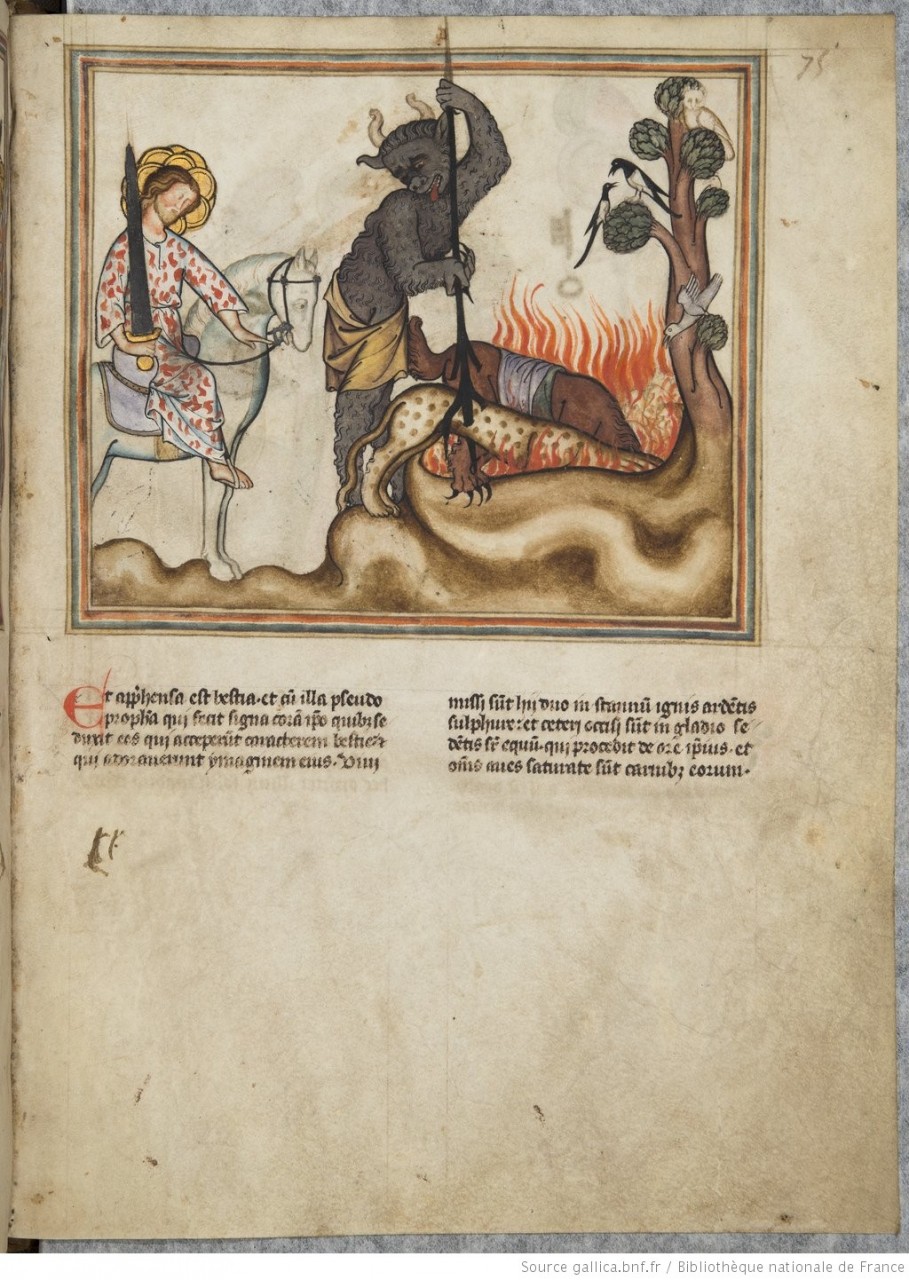 75
Et app̄hensa est bestia·et cū illa pseudo
propħa qui fecit signa corā ip̄o quibꝫ se
duxit eos qui acceperūt caracterem bestie ⁊
qui adorauerunt ymaginem eius· Viui
missi sūt hii duo in stannū ignis ardētis
sulphure:et ceteri occisi sūt in gladio se
dētis sr̄ equū·qui procedit de ore ip̄ius·et
om̄s aues saturate sūt carnibꝫ eorum·
Source gallica.bnf.fr / Bibliothèque nationale de France